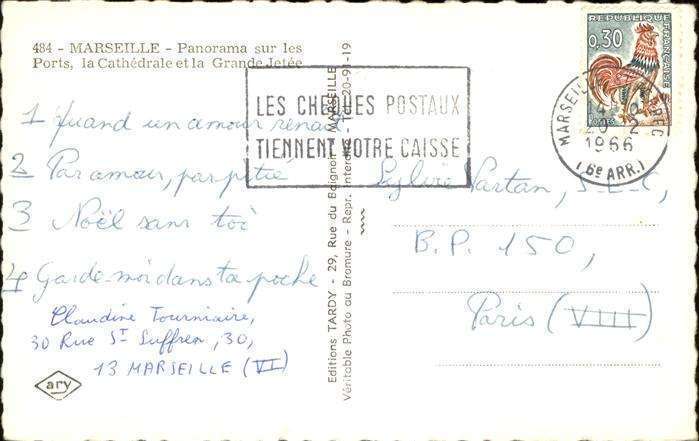 484 - MARSEILLE - Panorama sur les
Ports, la Cathédrale et la Grande Jetée
1 Quand un amour renaît
2 Par amour, par pitié
3 Noël sans toi
4 Garde-moi dans ta poche
Claudine Tourniaire,
30 Rue St Suffren, 30,
13 MARSEILLE (VI)
ary
Editions TARDY - 29, Rue du Baignoir - MARSEILLE
Véritable Photo au Bromure - Repr. Interdite 20-91-19
LES CHEQUES POSTAUX
TIENNENT VOTRE CAISSE
REPUBLIQUE FRANÇAISE
0,30
POSTES
MARSEILLE
14
20 - 2
1966
(6e ARR.)
Sylvie Vartan, S.L.C,
B.P. 150,
Paris (VIII)